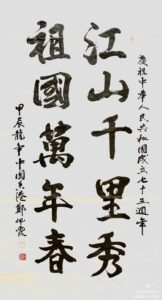 慶祝中華人民共和國成立七十五週年
江山千里秀
祖國萬年春
甲辰龍年中國香港鄭